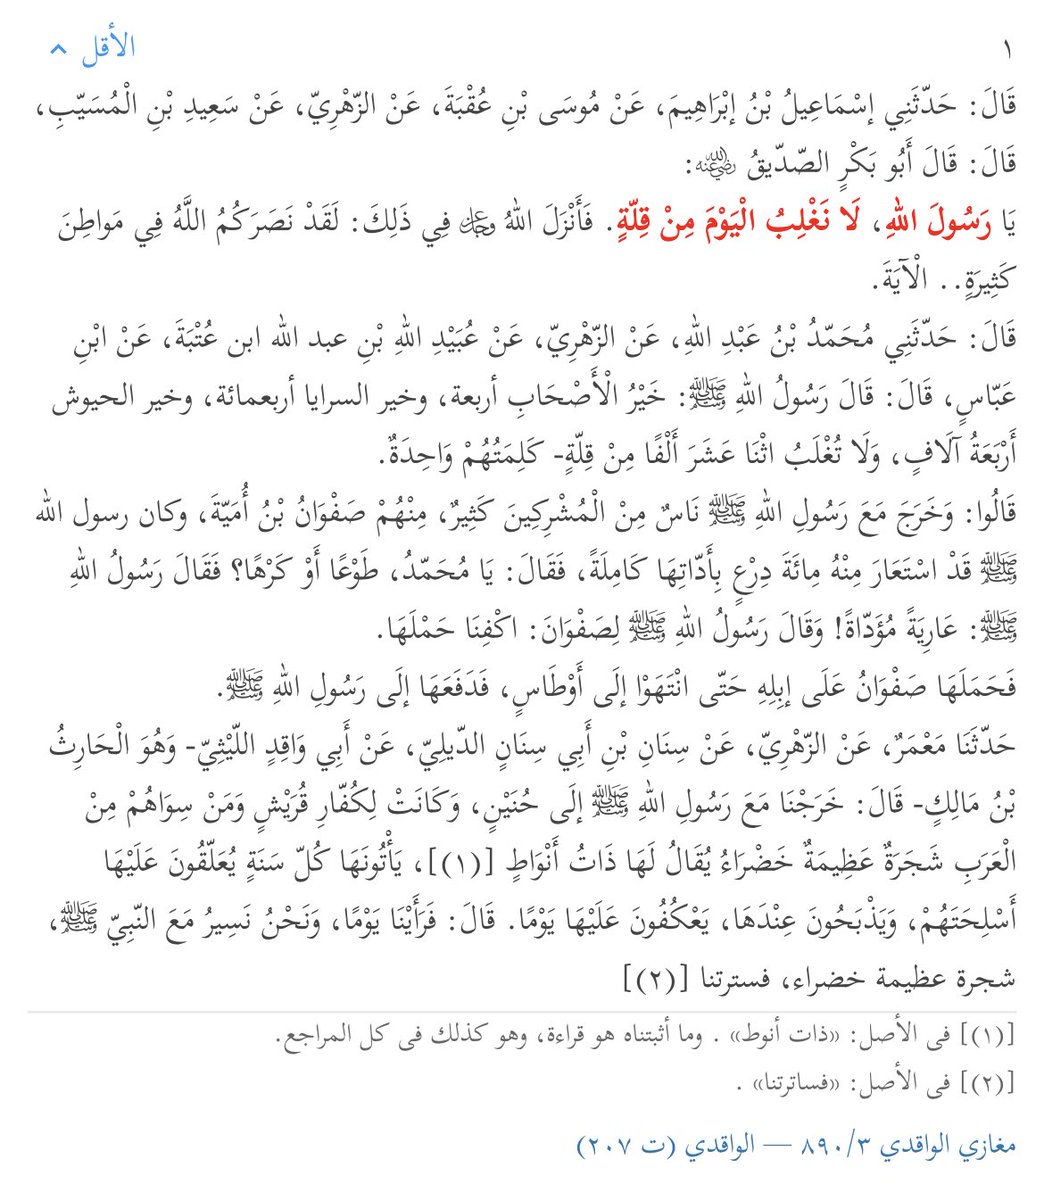 ١
الأقل
قَالَ: حَدّثَنِي إسْمَاعِيلُ بْنُ إبْرَاهِيمَ، عَنْ مُوسَى بْنِ عُقْبَةَ، عَنْ الزّهْرِيّ، عَنْ سَعِيدِ بْنِ الْمُسَيّبِ،
قَالَ: قَالَ أَبُو بَكْرٍ الصّدّيقُ ﵁:
يَا رَسُولَ اللهِ، لَا نَغْلِبُ الْيَوْمَ مِنْ قِلّةٍ. فَأَنْزَلَ اللهُ ﷿ فِي ذَلِكَ: لَقَدْ نَصَرَكُمُ اللَّهُ فِي مَواطِنَ
كَثِيرَةٍ.. الْآيَةَ.
قَالَ: حَدّثَنِي مُحَمّدُ بْنُ عَبْدِ اللهِ، عَنْ الزّهْرِيّ، عَنْ عُبَيْدِ اللهِ بْنِ عبد الله ابن عُتْبَةَ، عَنْ ابْنِ
عَبّاسٍ، قَالَ: قَالَ رَسُولُ اللهِ ﷺ: خَيْرُ الْأَصْحَابِ أربعة، وخير السرايا أربعمائة، وخير الحيوش
أَرْبَعَةُ آلَافٍ، وَلَا تُغْلَبُ اثْنَا عَشَرَ أَلْفًا مِنْ قِلّةٍ- كَلِمَتُهُمْ وَاحِدَةٌ.
قَالُوا: وَخَرَجَ مَعَ رَسُولِ اللهِ ﷺ نَاسٌ مِنْ الْمُشْرِكِينَ كَثِيرٌ، مِنْهُمْ صَفْوَانُ بْنُ أُمَيّةَ، وكان رسول الله
ﷺ قَدْ اسْتَعَارَ مِنْهُ مِائَةَ دِرْعٍ بِأَدّاتِهَا كَامِلَةً، فَقَالَ: يَا مُحَمّدُ، طَوْعًا أَوْ كَرْهًا؟ فَقَالَ رَسُولُ اللهِ
ﷺ: عَارِيَةً مُؤَدّاةً! وَقَالَ رَسُولُ اللهِ ﷺ لِصَفْوَانَ: اكْفِنَا حَمْلَهَا.
فَحَمَلَهَا صَفْوَانُ عَلَى إبِلِهِ حَتّى انْتَهَوْا إلَى أَوْطَاسٍ، فَدَفَعَهَا إلَى رَسُولِ اللهِ ﷺ.
حَدّثَنَا مَعْمَرٌ، عَنْ الزّهْرِيّ، عَنْ سِنَانِ بْنِ أَبِي سِنَانٍ الدّيلِيّ، عَنْ أَبِي وَاقِدٍ اللّيْثِيّ- وَهُوَ الْحَارِثُ
بْنُ مَالِكٍ- قَالَ: خَرَجْنَا مَعَ رَسُولِ اللهِ ﷺ إلَى حُنَيْنٍ، وَكَانَتْ لِكُفّارِ قُرَيْشٍ وَمَنْ سِوَاهُمْ مِنْ
الْعَرَبِ شَجَرَةٌ عَظِيمَةٌ خَضْرَاءُ يُقَالُ لَهَا ذَاتُ أَنْوَاطٍ [(١)]، يَأْتُونَهَا كُلّ سَنَةٍ يُعَلّقُونَ عَلَيْهَا
أَسْلِحَتَهُمْ، وَيَذْبَحُونَ عِنْدَهَا، يَعْكُفُونَ عَلَيْهَا يَوْمًا. قَالَ: فَرَأَيْنَا يَوْمًا، وَنَحْنُ نَسِيرُ مَعَ النّبِيّ ﷺ،
شجرة عظيمة خضراء، فسترتنا [(٢)]
[(١)] فى الأصل: «ذات أنوط» . وما أثبتناه هو قراءة، وهو كذلك فى كل المراجع.
[(٢)] فى الأصل: «فساترتنا» .
مغازي الواقدي ٣/‏٨٩٠ — الواقدي (ت ٢٠٧)